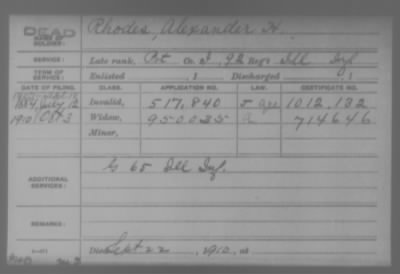 DEAD
NAME OF SOLDIER: Rhodes, Alexander H.
SERVICE: Late rank, Pvt Co. I, 92 Reg't Ill Inf
TERM OF SERVICE: Enlisted , 1 Discharged , 1
DATE OF FILING. CLASS. APPLICATION NO. LAW. CERTIFICATE NO.
1884 July 12 Invalid, 517,840 1012,132
1910 Oct 3 Widow, 950035 714646
Minor,
ADDITIONAL SERVICES: G 65 Ill Inf.
REMARKS:
Died Sept 22, 1910, at